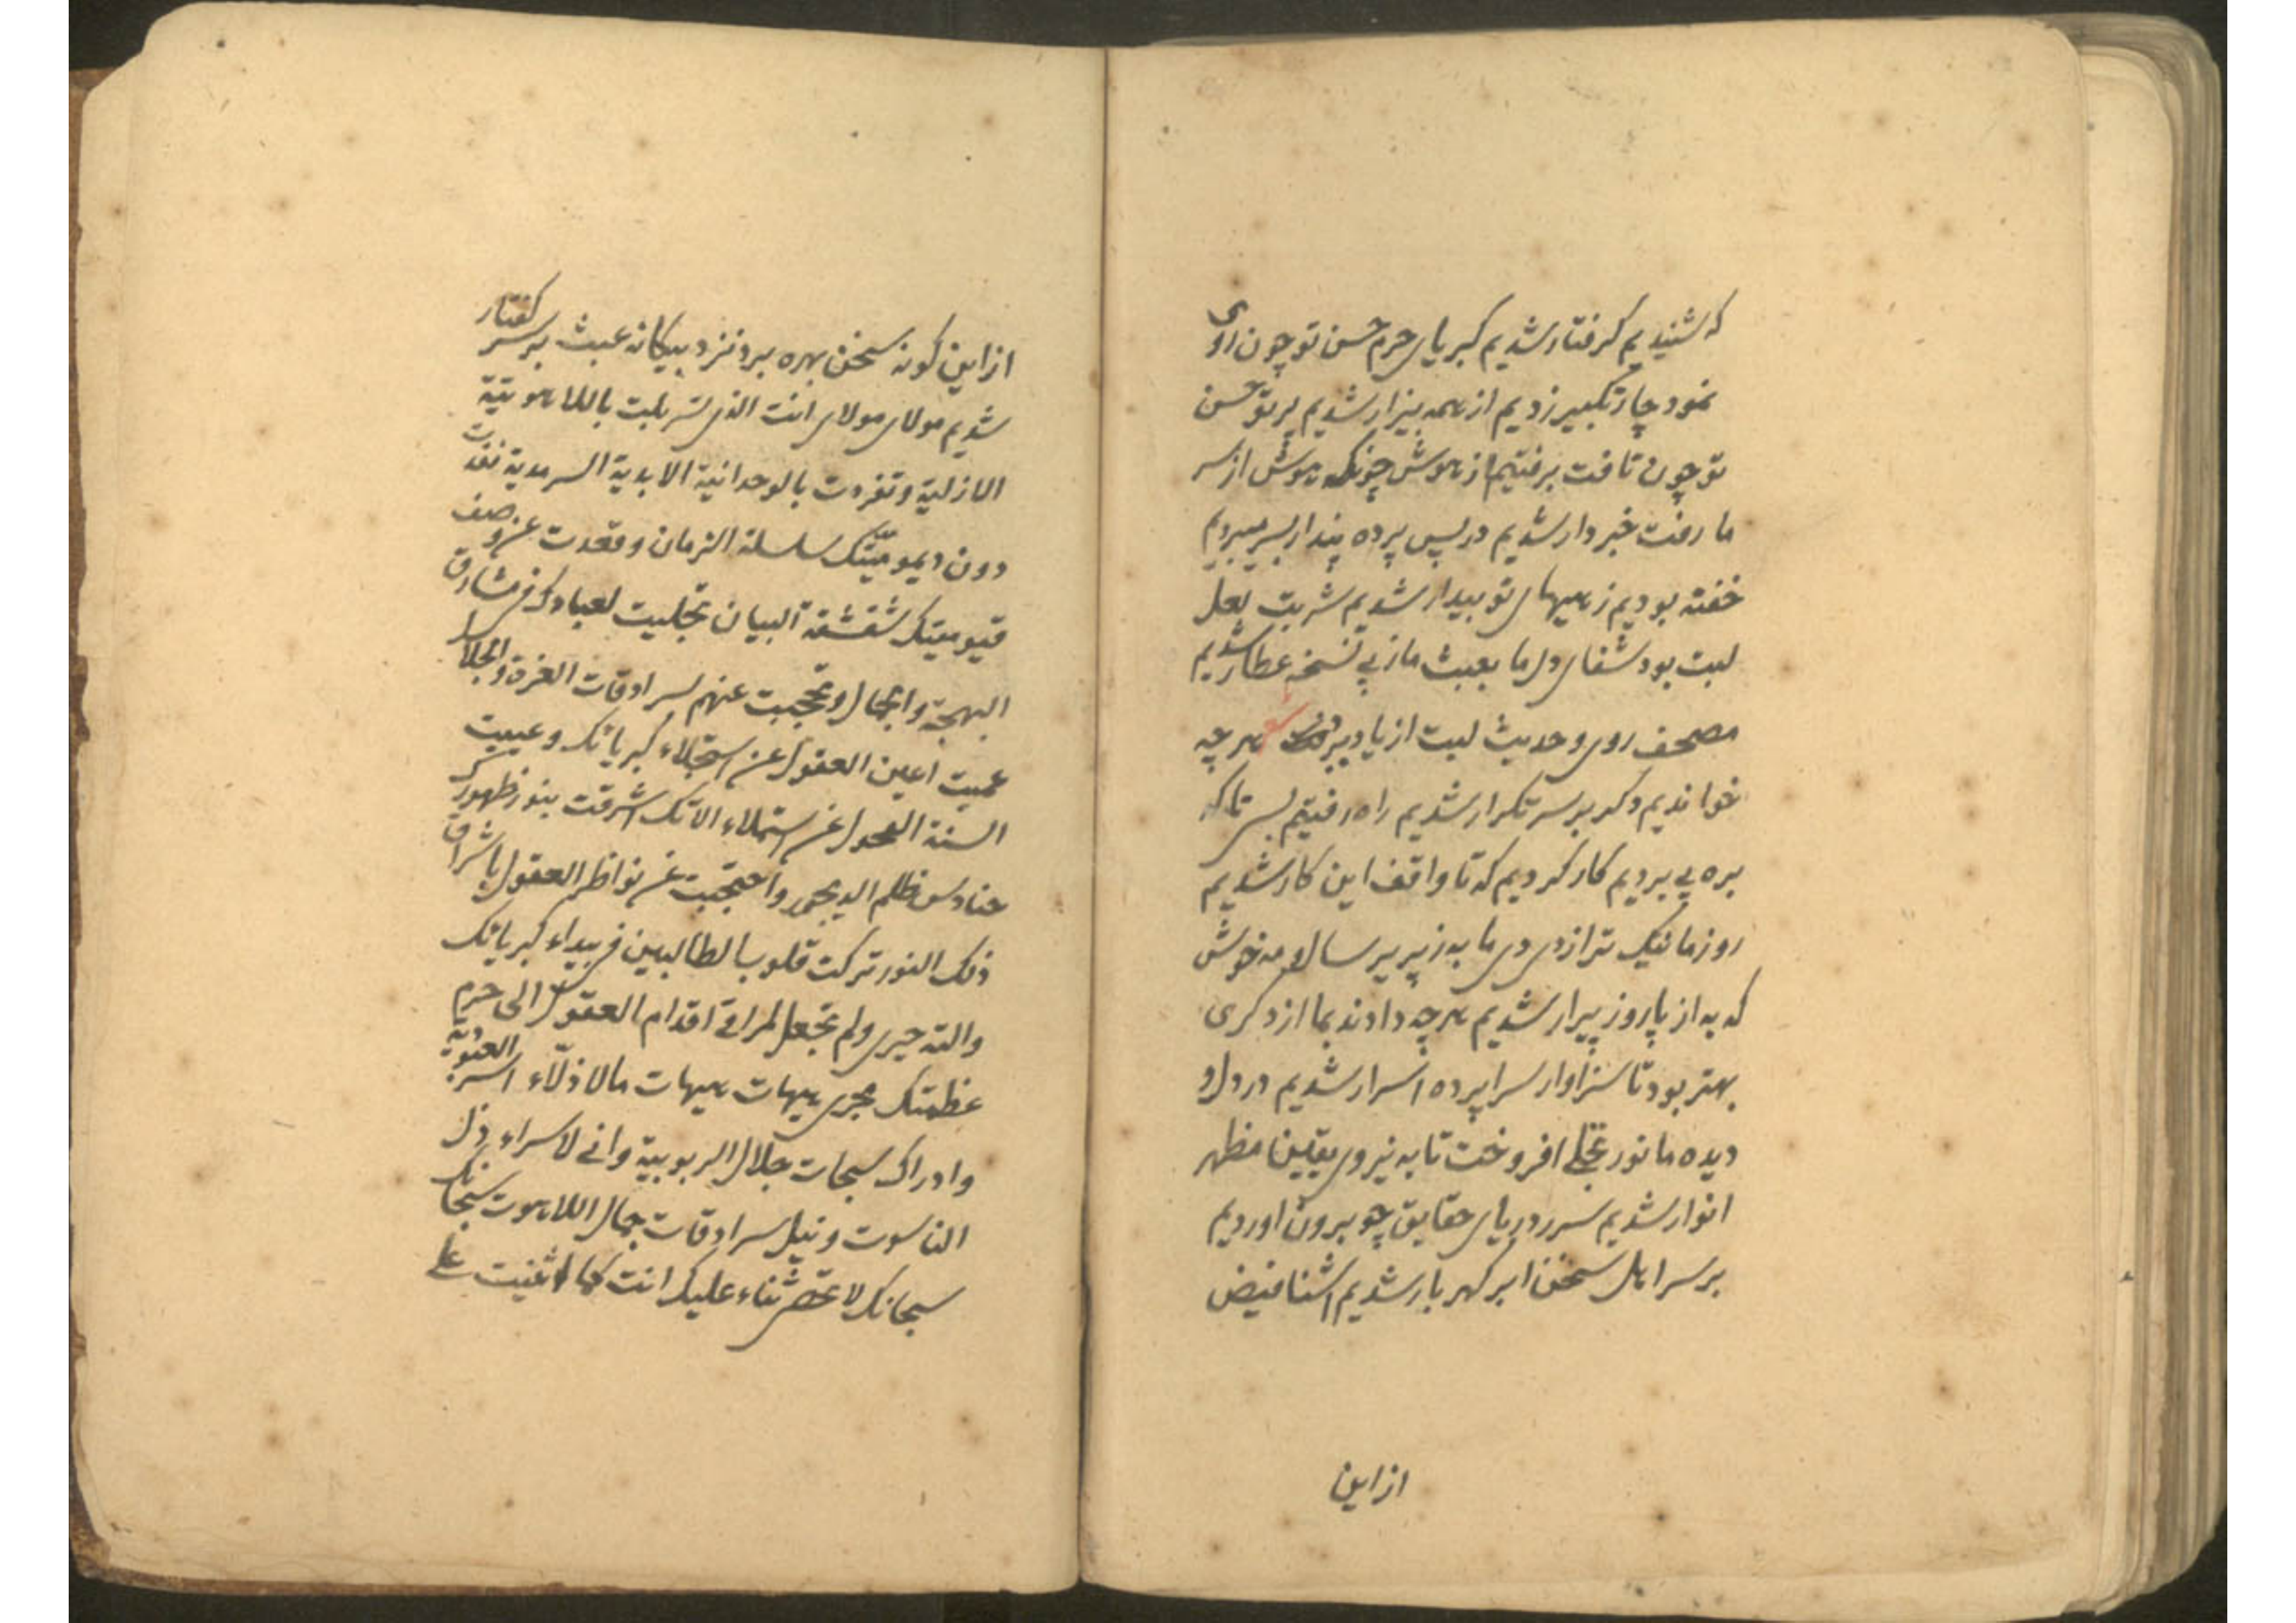 که شنیدیم گرفتار شدیم کبریای حرم حسن تو چون روی
نمود چار تکبیر زدیم از همه بیزار شدیم پرتو حسن
تو چون تافت برفتیم از هوش چونکه هوش از سر
ما رفت خبردار شدیم در پس پرده پندار بسر میبردیم
خفته بودیم ز هیهای تو بیدار شدیم شربت لعل
لبت بود شفای دل ما بعبث ما ز پی نسخه عطار شدیم
مصحف روی و حدیث لبت از یاد ببرد هر چه
خواندیم دگر بر سر تکرار شدیم راه رفتیم بسی تا که
بره پی بردیم کار کردیم که تا واقف این کار شدیم
روز ما نیک تر از دی دی ما به ز پریر سال و مه خوش
که به از پار و ز پیرار شدیم هر چه دادند بما از دگری
بهتر بود تا سزاوار سراپرده اسرار شدیم در دل و
دیده ما نور تجلی افروخت تا به نیروی یقین مظهر
انوار شدیم سر ز دریای حقایق چو برون اوردیم
بر سر اهل سخن ابر کهر بار شدیم اشنا فیض
از این
از این کونه سخن بهره برد نزد بیکانه عبث بر سر کفتار
شدیم مولای مولای انت الذی تسربلت باللاهوتیة
الازلیة و تفردت بالوحدانیة الابدیة السرمدیة نفدت
دون دیمومیّتک سلسلة الزمان و قعدت عن وصف
قیومیتک شقشقة البیان تجلیت لعبادک فی مشارق
البهجة و الجمال و تحجبت عنهم بسرادقات العزة و الجلال
عمیت اعین العقول عن استجلاء کبریائک و عییت
السنة الفحول عن استملاء الائک اشرقت بنور ظهورک
حنادس ظلم الدیجور و احتجبت عن نواظر العقول باشراق
ذلک النور ترکت قلوب الطالبین فی بیداء کبریائک
والته حیری و لم تجعل لمراقی اقدام العقول الی حرم
عظمتک مجری هیهات هیهات ما لاذلاء اسر العبودیة
و ادراک سبحات جلال الربوبیة و انی لاسراء ذل
الناسوت و نیل سرادقات جمال اللاهوت سبحانک
سبحانک لا نحصی ثناء علیک انت کما اثنیت علی